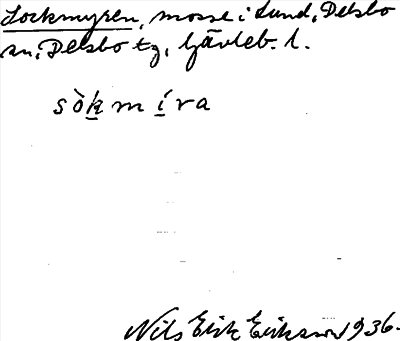 Sockmyren, mosse i Lund, Delsbo
sn, Delsbo tg, Gävleb. l.
sòk̲mi̲ra
Nils Erik Erikson 1936.